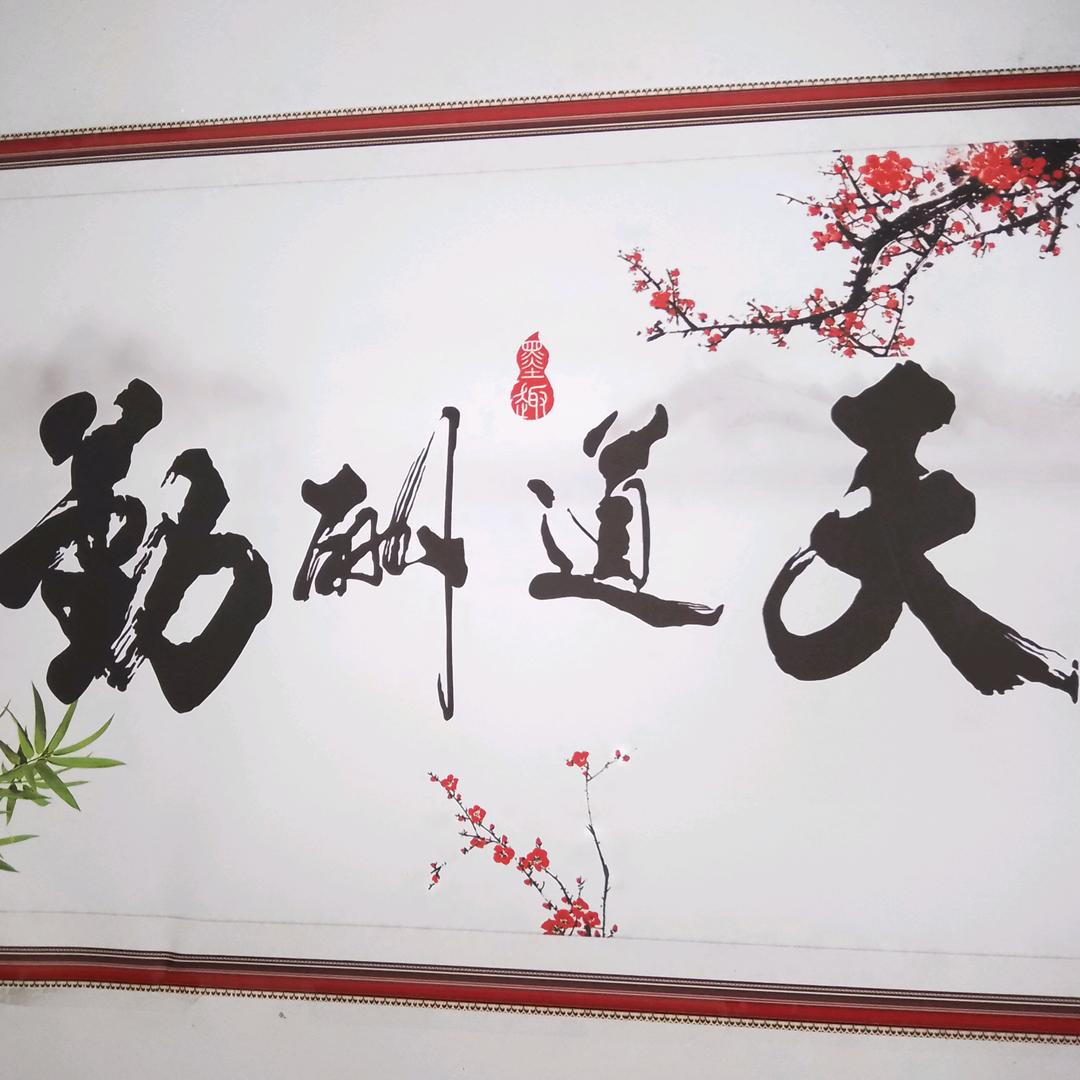 天道酬勤
墨趣